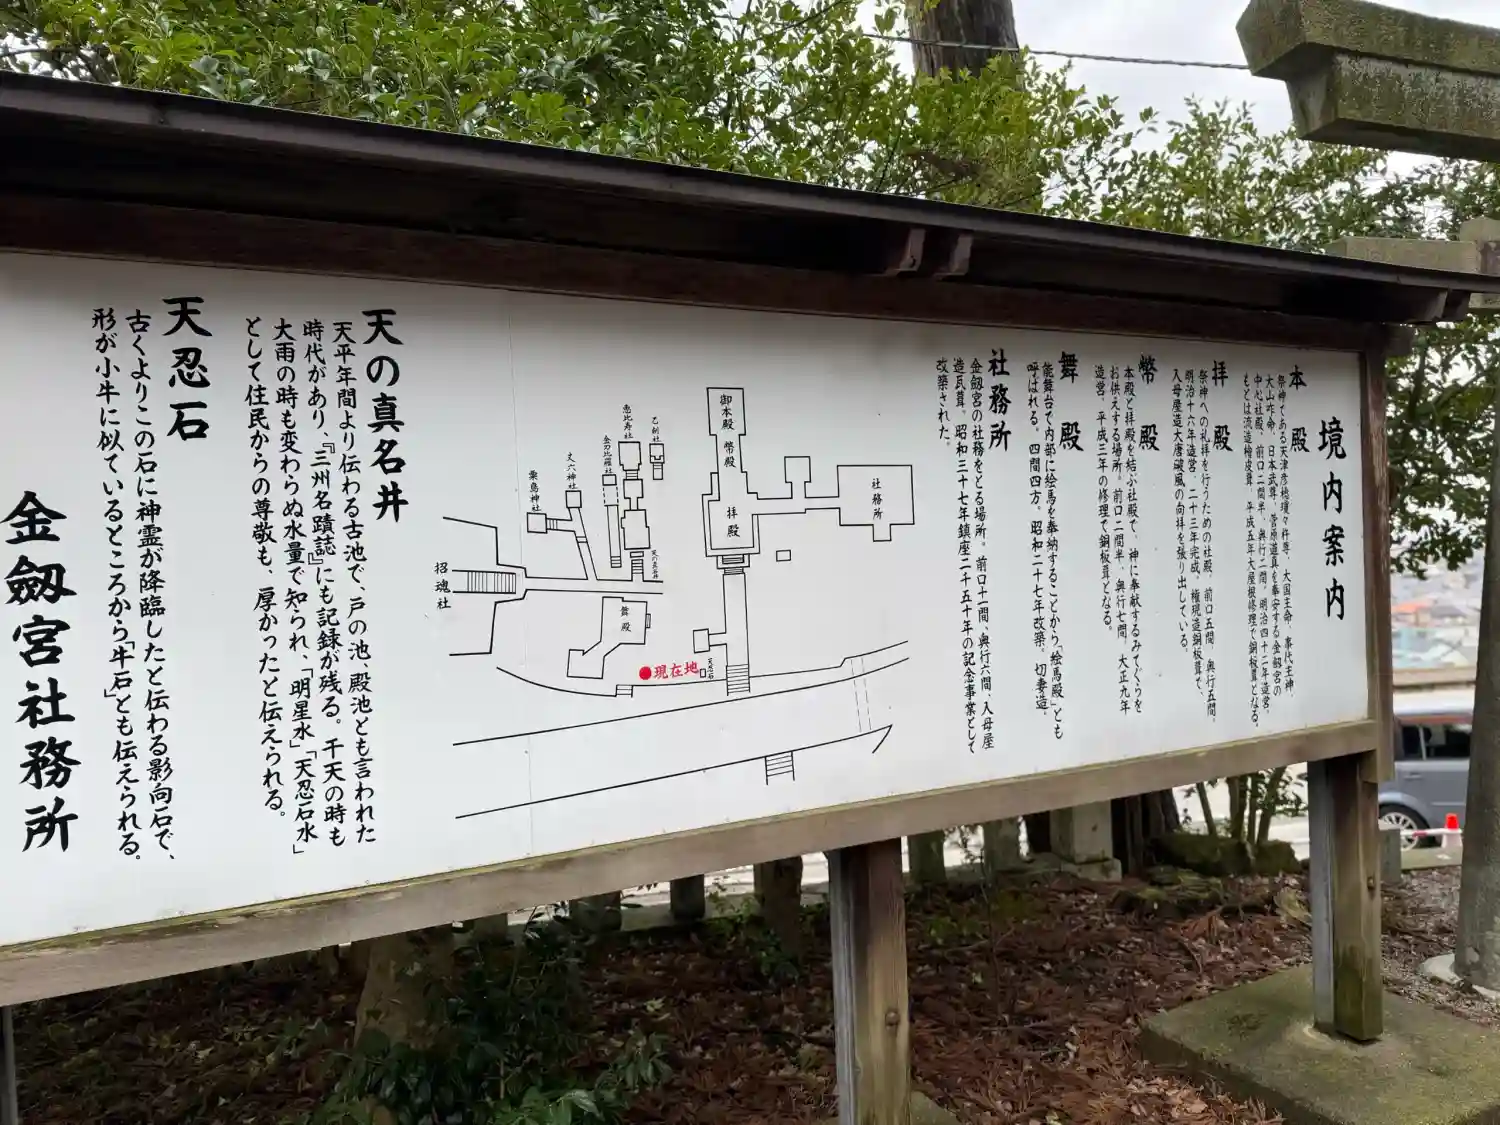 境内案内
本殿
祭神である天津彦穂瓊々杵尊、大国主命、事代主神、
大山咋命、日本武尊、菅原道真を奉安する金劔宮の
中心社殿。前口二間半、奥行二間。明治四十二年造営。
もとは流造檜皮葺、平成五年大屋根修理で銅板葺となる。
拝殿
祭神への礼拝を行うための社殿。前口五間、奥行五間。
明治十六年造営、二十三年完成。権現造銅板葺で、
入母屋造大唐破風の向拝を張り出している。
幣殿
本殿と拝殿を結ぶ社殿で、神に奉献するみてぐらを
お供えする場所。前口二間半、奥行七間。大正九年
造営、平成三年の修理で銅板葺となる。
舞殿
能舞台で内部に絵馬を奉納することから「絵馬殿」とも
呼ばれる。四間四方。昭和二十七年改築。切妻造。
社務所
金劔宮の社務をとる場所。前口十一間、奥行六間、入母屋
造瓦葺。昭和三十七年鎮座二千五十年の記念事業として
改築された。
御本殿
幣殿
拝殿
社務所
乙剣社
恵比寿社
金刀比羅社
丈六神社
粟島神社
招魂社
天の真名井
舞殿
現在地
天忍石
天の真名井
天平年間より伝わる古池で、戸の池、殿池とも言われた
時代があり、『三州名蹟誌』にも記録が残る。干天の時も
大雨の時も変わらぬ水量で知られ、「明星水」「天忍石水」
として住民からの尊敬も、厚かったと伝えられる。
天忍石
古くよりこの石に神霊が降臨したと伝わる影向石で、
形が小牛に似ているところから「牛石」とも伝えられる。
金劔宮社務所